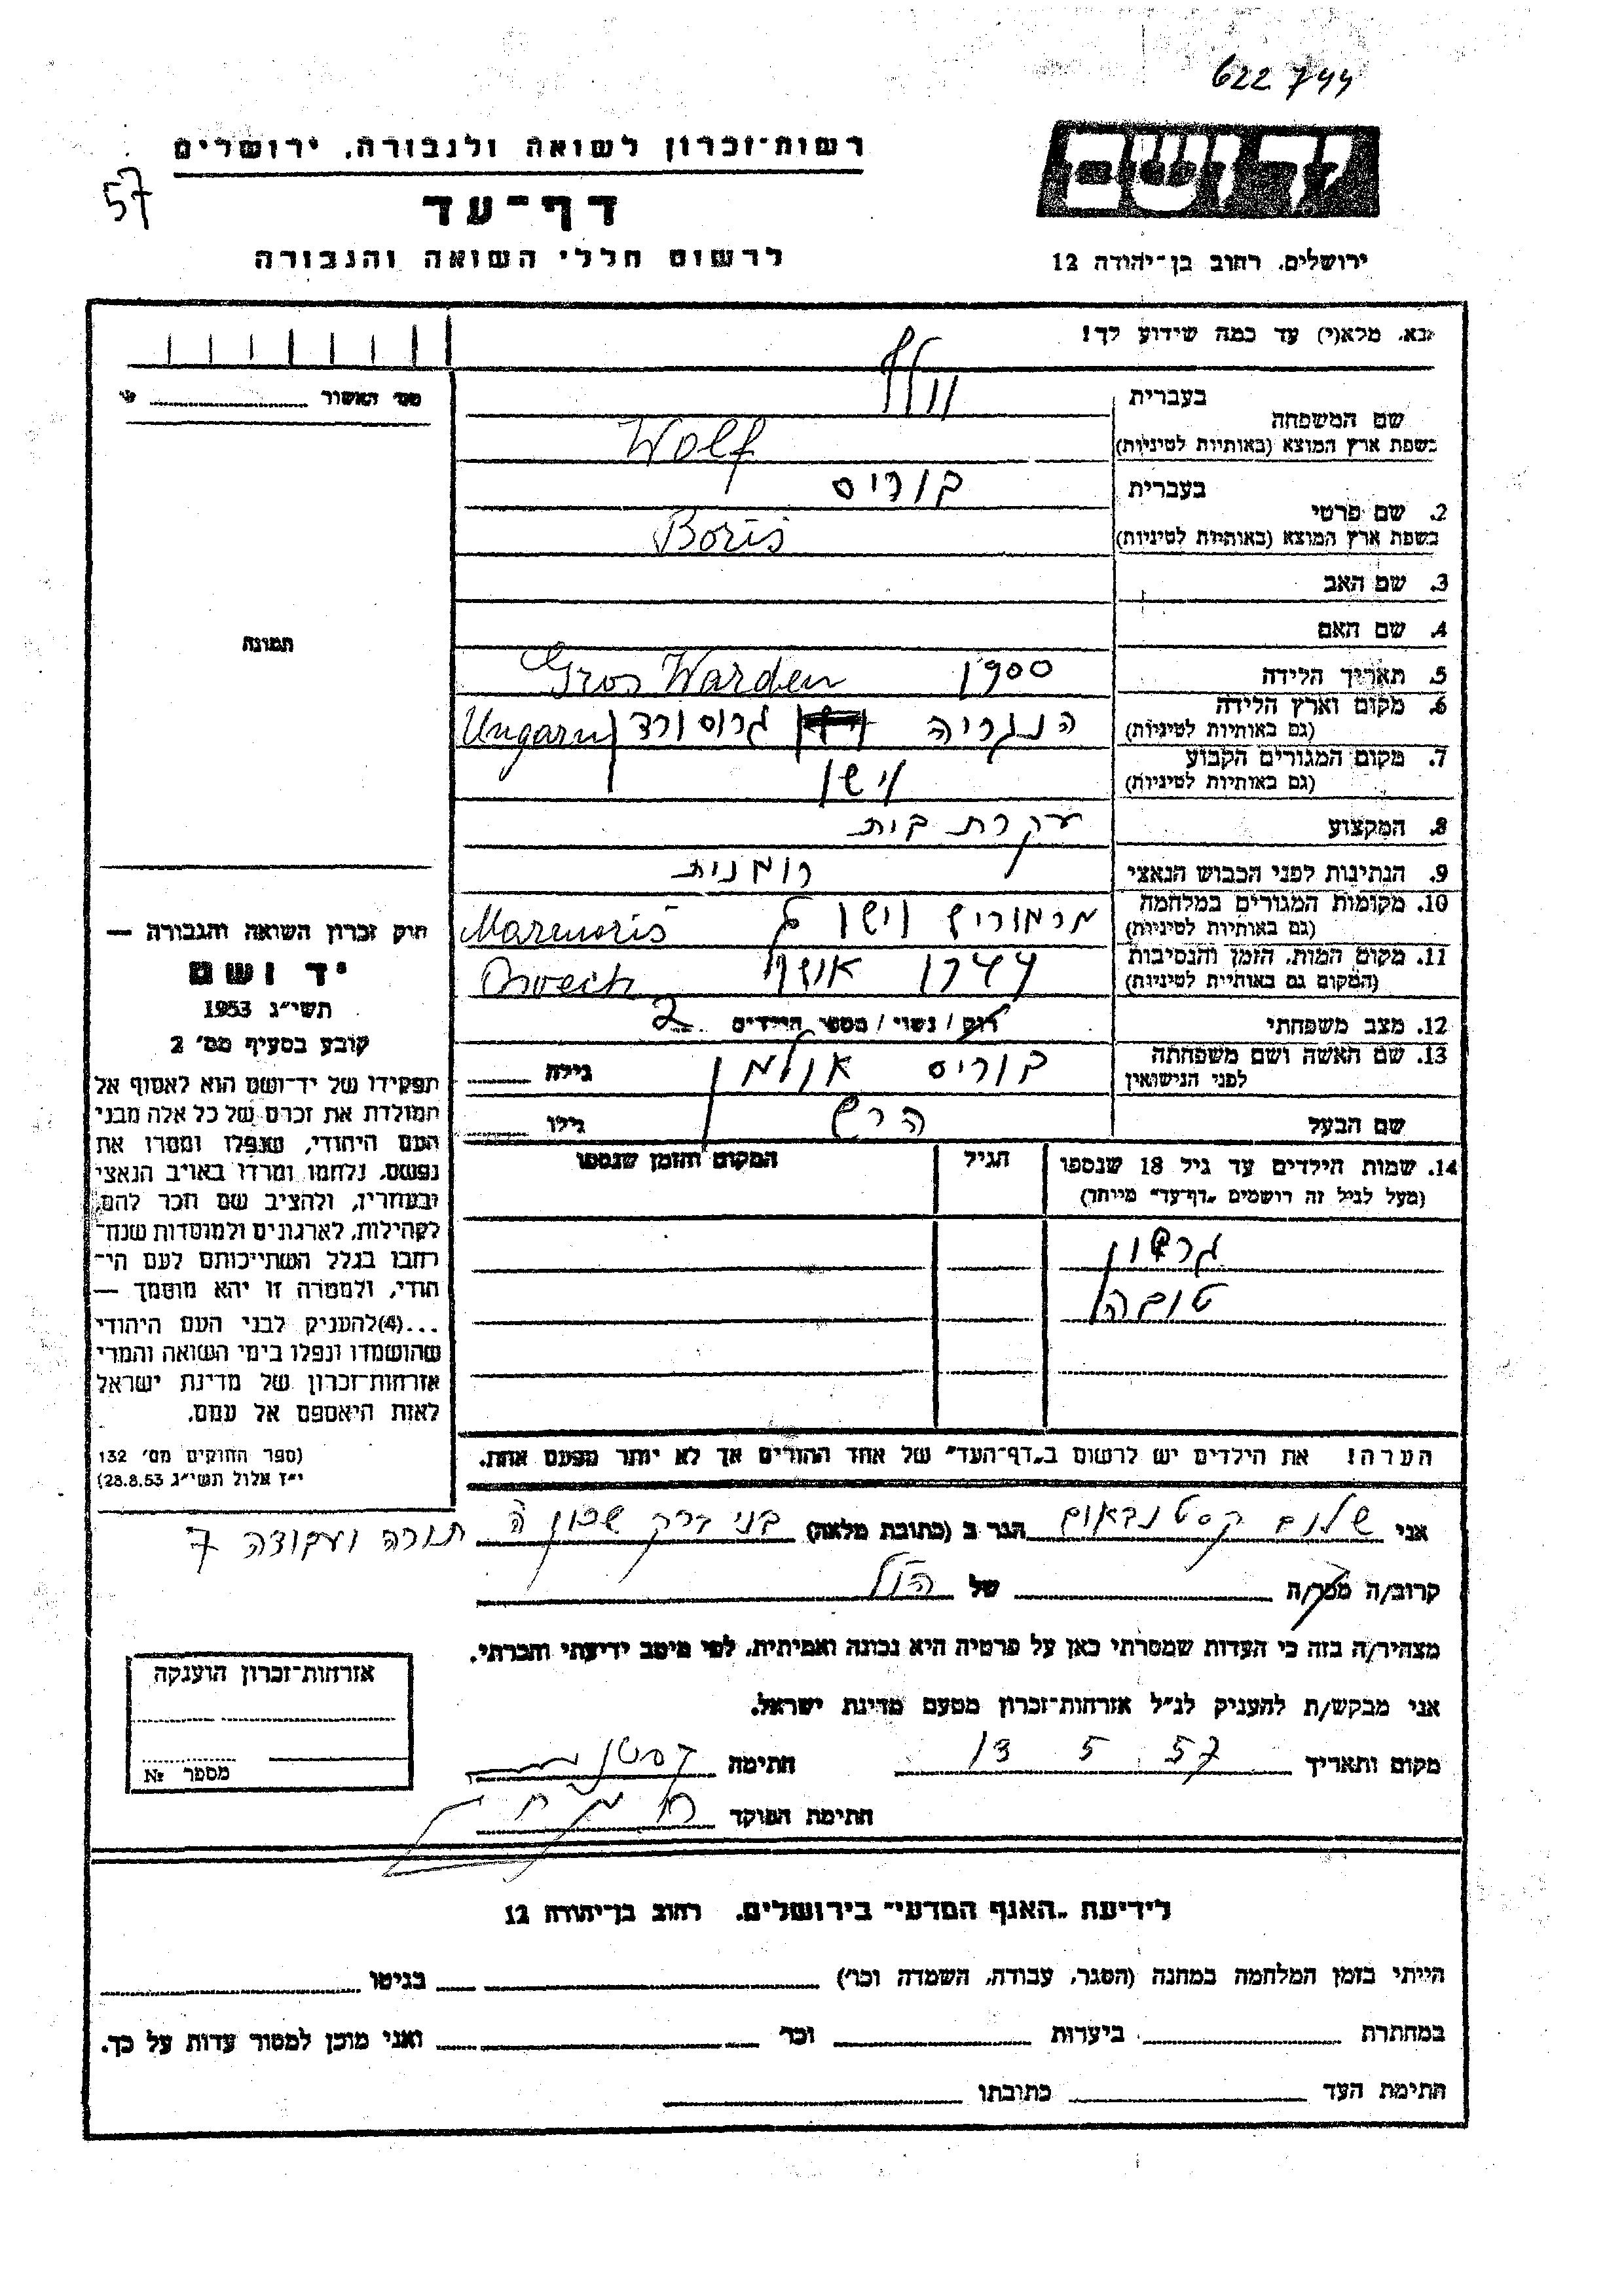 622744
רשות־זכרון לשואה ולגבורה, ירושלים
57
דף־עד
לרשום חללי השואה והגבורה
יד ושם
ירושלים, רחוב בן־יהודה 12
נא, מלא(י) עד כמה שידוע לך!
מס׳ האשור
שם המשפחה
בעברית וולף
בשפת ארץ המוצא (באותיות לטיניות) Wolf
2. שם פרטי
בעברית בוריס
בשפת ארץ המוצא (באותיות לטיניות) Boris
3. שם האב
4. שם האם
תמונה
5. תאריך הלידה 1900 Gros Warden
6. מקום וארץ הלידה
(גם באותיות לטיניות) הונגריה גרוסורדן Ungarn
7. מקום המגורים הקבוע
(גם באותיות לטיניות) וישו
8. המקצוע עקרת בית
9. הנתינות לפני הכבוש הנאצי רומנית
10. מקומות המגורים במלחמה
(גם באותיות לטיניות) מרמוריש וישו Marmoris
11. מקום המות, הזמן והנסיבות
(המקום גם באותיות לטיניות) 1944
12. מצב משפחתי רוק / נשוי / מספר הילדים 2
13. שם האשה ושם משפחתה
לפני הנישואין בוריס אולמן גילה
שם הבעל הרש גילו
14. שמות הילדים עד גיל 18 שנספו
(מעל לגיל זה רושמים „דף־עד” מיוחד)
הגיל
המקום והזמן שנספו
גרשון
טובה
הערה! את הילדים יש לרשום ב„דף־העד” של אחד ההורים אך לא יותר מפעם אחת.
חוק זכרון השואה והגבורה —
יד ושם
תשי״ג 1953
קובע בסעיף מס׳ 2
תפקידו של יד־ושם הוא לאסוף אל
המולדת את זכרם של כל אלה מבני
העם היהודי, שנפלו ומסרו את
נפשם, נלחמו ומרדו באויב הנאצי
ובעוזריו, ולהציב שם וזכר להם,
לקהילות, לארגונים ולמוסדות שנח־
רבו בגלל השתייכותם לעם הי־
הודי, ולמטרה זו יהא מוסמך —
...(4) להעניק לבני העם היהודי
שהושמדו ונפלו בימי השואה והמרי
אזרחות־זכרון של מדינת ישראל
לאות היאספם אל עמם.
(ספר החוקים מס׳ 132
י״ז אלול תשי״ג 28.8.53)
אני שלום קסטנבאום הגר ב (כתובת מלאה) בני ברק שכון ה תורה ועבודה 7
קרוב/ה מכר/ה של הנ״ל
מצהיר/ה בזה כי העדות שמסרתי כאן על פרטיה היא נכונה ואמיתית, לפי מיטב ידיעתי והכרתי.
אני מבקש/ת להעניק לנ״ל אזרחות־זכרון מטעם מדינת ישראל.
מקום ותאריך 13 5 57 חתימה
חתימת הפוקד
אזרחות־זכרון הוענקה
מספר №
לידיעת „האגף המדעי” בירושלים, רחוב בן־יהודה 12
הייתי בזמן המלחמה במחנה (הסגר, עבודה, השמדה וכו׳) בגיטו
במחתרת ביערות וכו׳ ואני מוכן למסור עדות על כך.
חתימת העד כתובתו